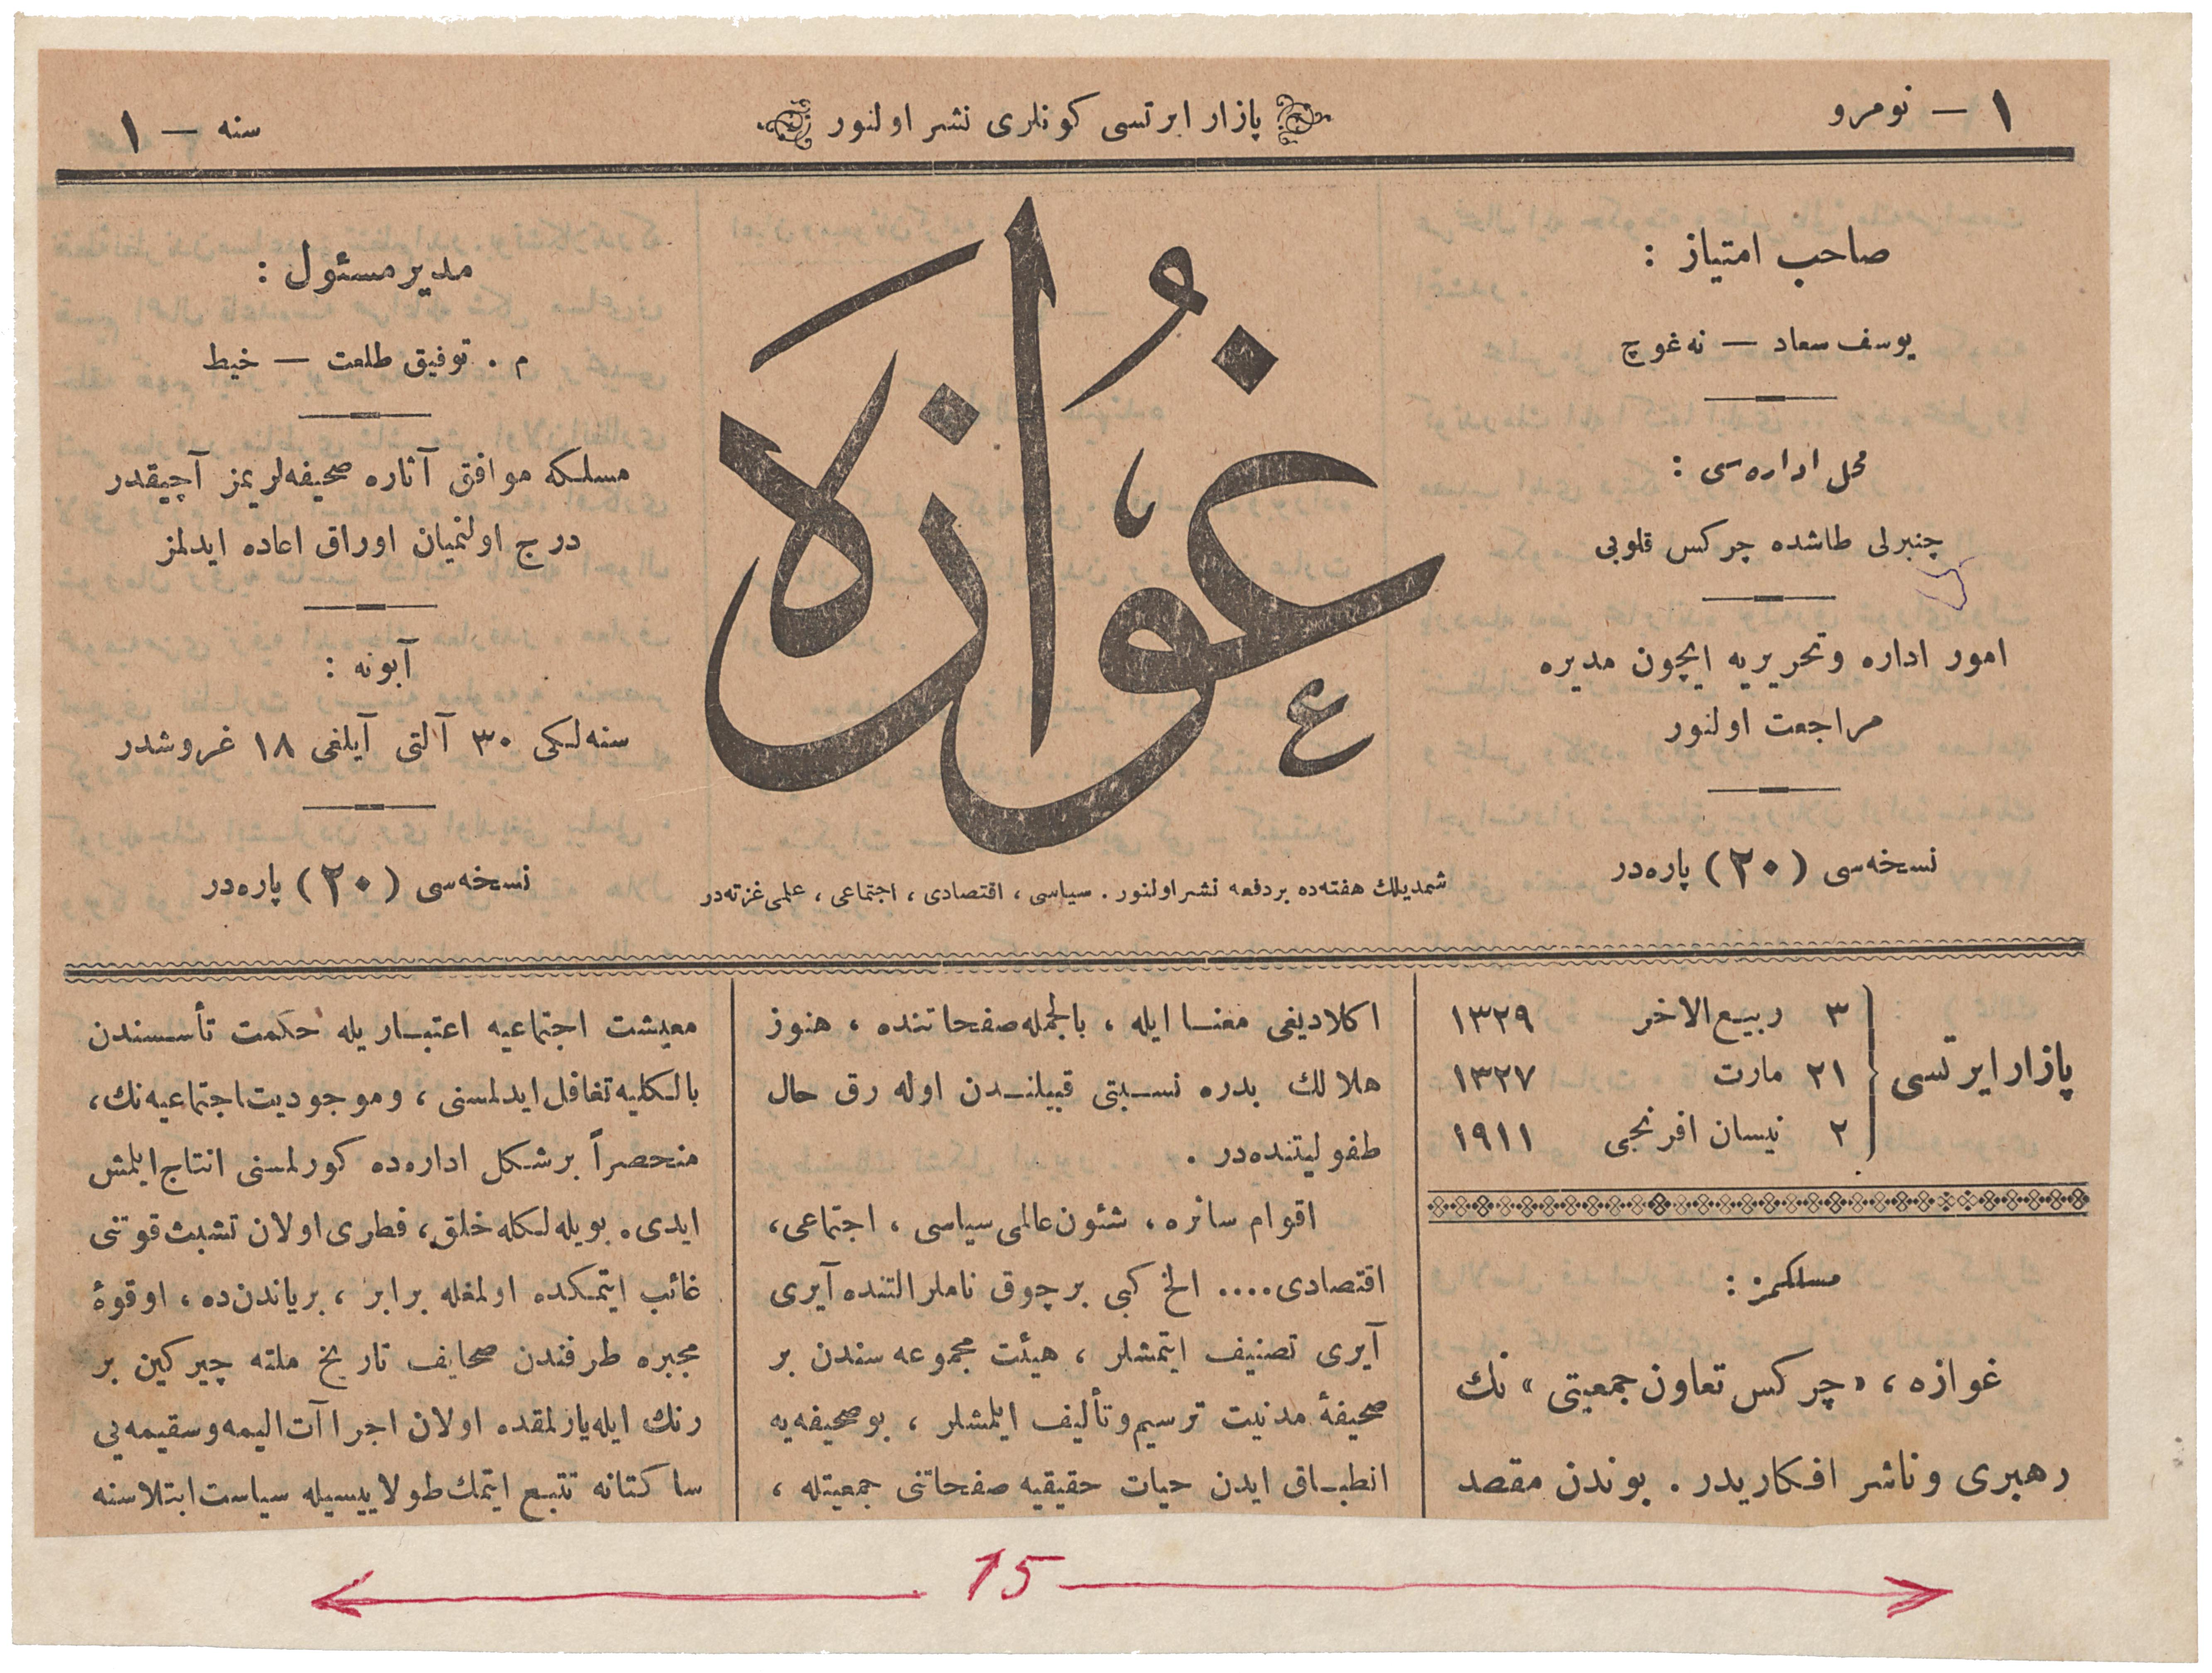 ١ — نومرو
پازار ایرتسی کونلری نشر اولنور
سنه — ١
صاحب امتیاز :
یوسف سعاد — نه‌غوچ
محل اداره‌سی :
چنبرلی طاشده چرکس قلوبی
امور اداره وتحریریه ایچون مدیره
مراجعت اولنور
نسخه‌سی (٢٠) پاره‌در
غوازه
ع
شمدیلك هفته‌ده بردفعه نشر اولنور . سیاسی ، اقتصادی ، اجتماعی ، علمی غزته‌در
مدیر مسئول :
م . توفیق طلعت — خیط
مسلکه موافق آثاره صحیفه‌لریمز آچیقدر
درج اولنمیان اوراق اعاده ایدلمز
آبونه :
سنه‌لکی ٣٠ آلتی آیلغی ١٨ غروشدر
نسخه‌سی (٢٠) پاره‌در
پازار ایرتسی
٣ ربیع‌الاخر ١٣٢٩
٢١ مارت ١٣٢٧
٢ نیسان افرنجی ١٩١١
مسلکمز :
غوازه ، «چرکس تعاون جمعیتی» نك
رهبری وناشر افکاریدر . بوندن مقصد
اکلادیغی معنـا ایله ، بالجمله صفحاتنده ، هنوز
هلالك بدره نسـبتی قبیلنـدن اوله رق حال
طفولیتنده‌در .
اقوام سائره ، شئون عالمی سیاسی ، اجتماعی،
اقتصادی.... الخ کبی برچوق ناملر التنده آیری
آیری تصنیف ایتمشلر ، هیئت مجموعه سندن بر
صحیفهٔ مدنیت ترسیم وتألیف ایلمشلر ، بو صحیفه‌یه
انطبـاق ایدن حیات حقیقیه صفحاتنی جمعیتله ،
معیشت اجتماعیه اعتبـاریله حکمت تأسـسندن
بالـکلیه تغافل ایدلمسنی ، وموجودیت اجتماعیه‌نك،
منحصراً برشکل اداره‌ده کورلمسنی انتاج ایلمش
ایدی. بویله‌لکله خلق، فطری اولان تشبث قوتنی
غائب ایتمـکده اولمغله برابر ، بریاندن‌ده ، اوقوهٔ
مجبره طرفندن صحایف تاریخ ملته چیرکین بر
رنك ایله یازلمقده اولان اجراآت الیمه وسقیمه‌یی
ساکتانه تتبـع ایتمك طولاییسیله سیاست ابتلاسنه
15